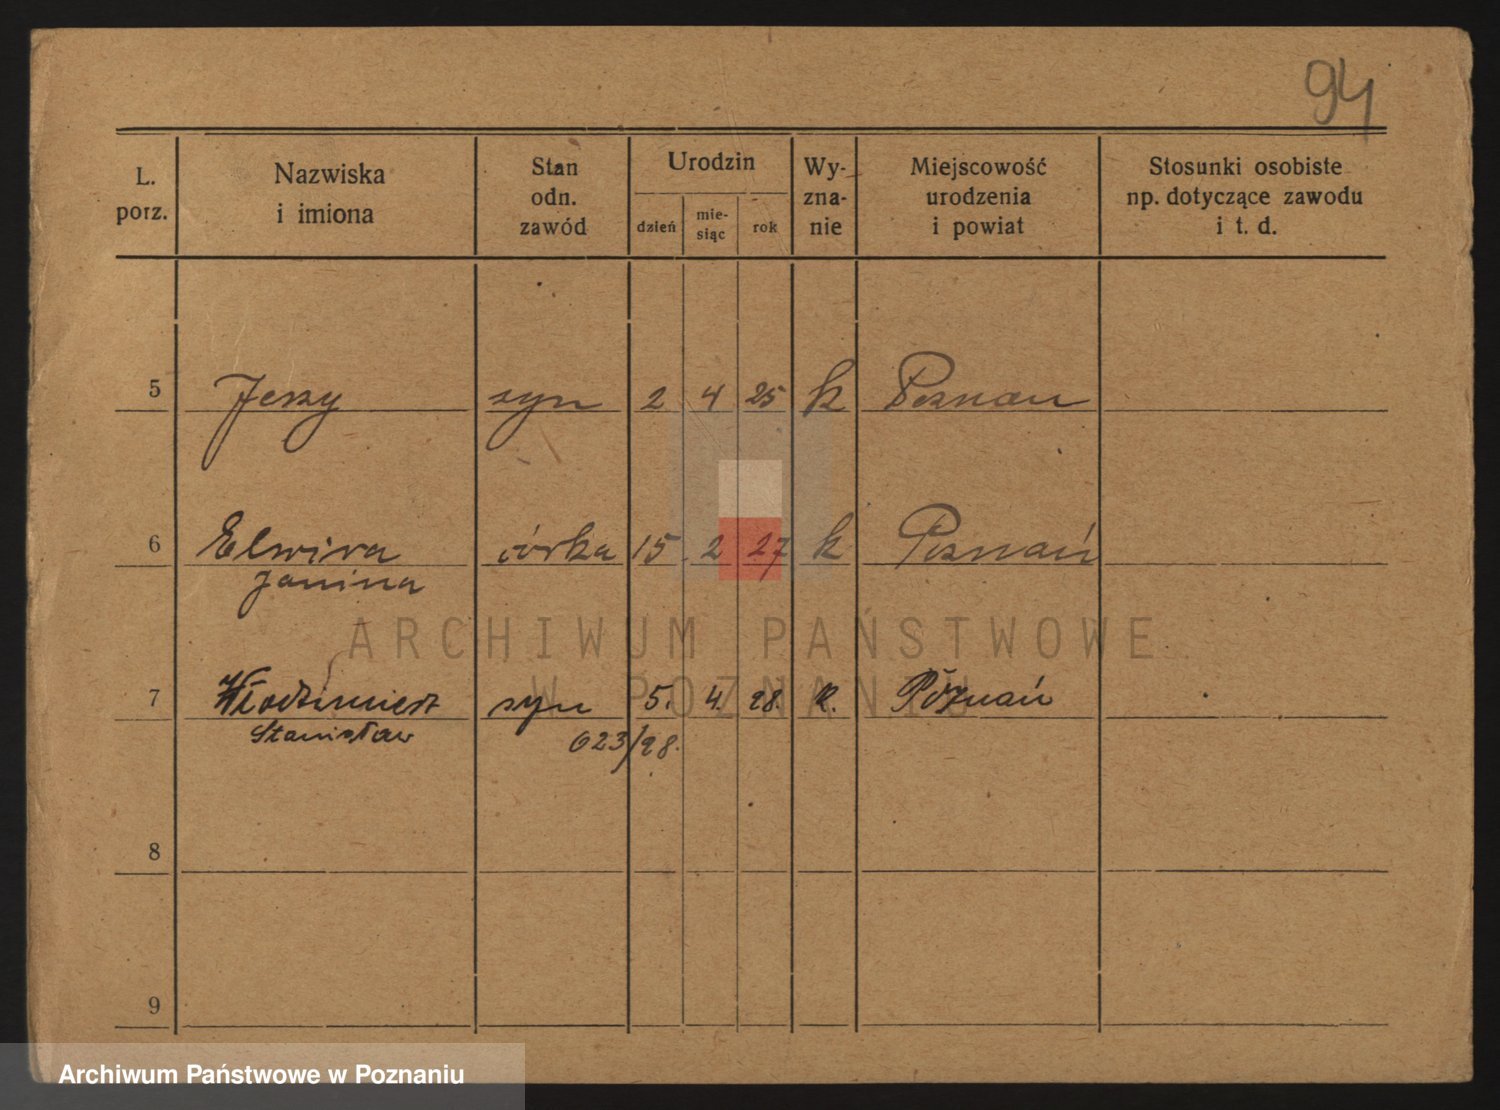 94
L. porz. Nazwiska i imiona Stan odn. zawód Urodzin dzień mie- siąc rok Wy- zna- nie Miejscowość urodzenia i powiat Stosunki osobiste np. dotyczące zawodu i t. d.
5 Jerzy syn 2 4 25 k Poznan
6 Elwira córka 15 2 27 k Poznań
Janina
ARCHIWUM PAŃSTWOWE
W POZNANIU
7 Włodzimierz syn 5. 4. 28. k. Poznań
Stanisław 623/28.
8
9
Archiwum Państwowe w Poznaniu